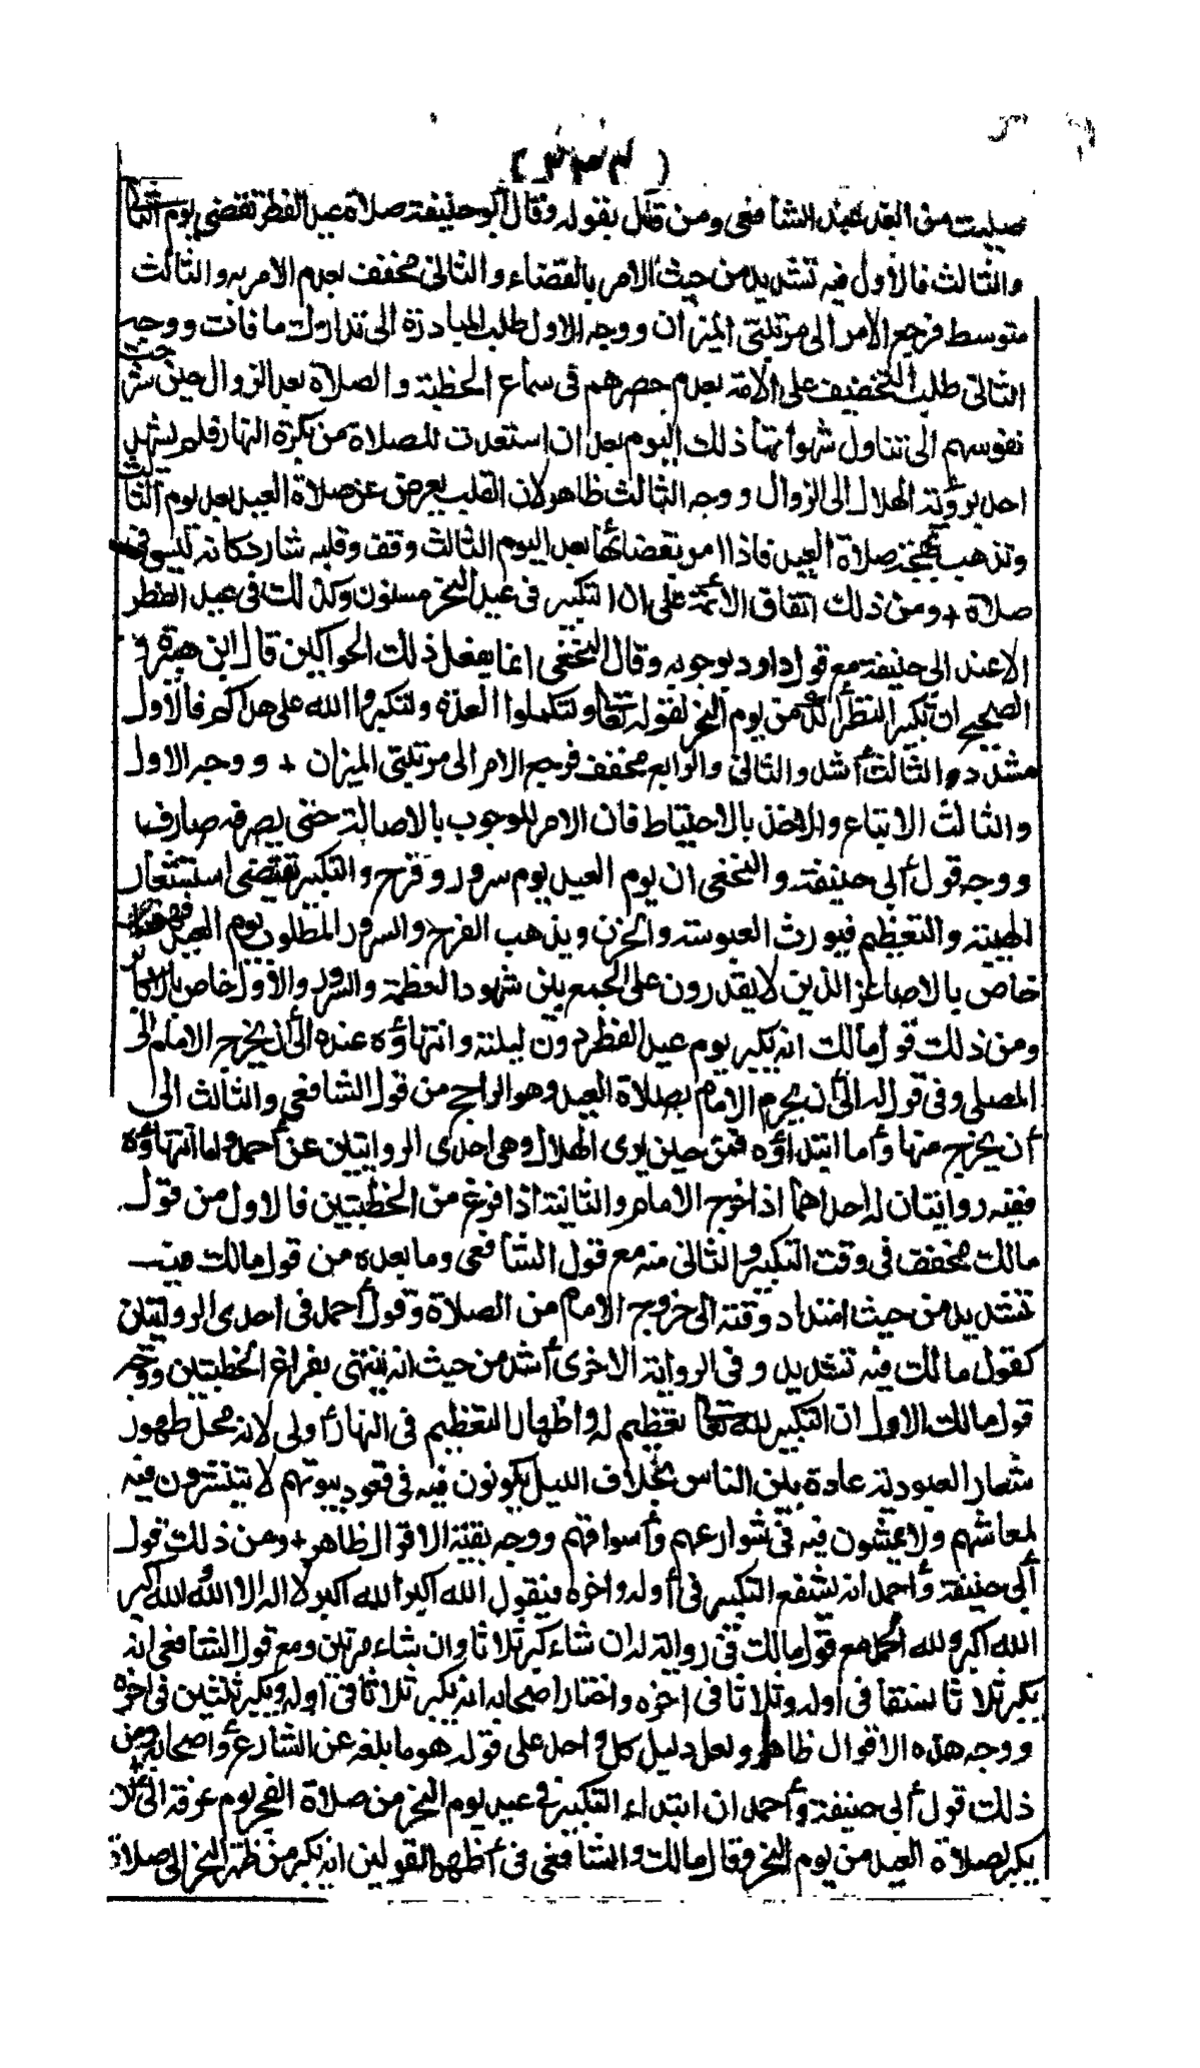 (٢٣٤)
صليت من الغد عند الشافعى ومن قال بقوله وقال أبو حنيفة صلاة عيد الفطر تقضى يوم الثانى
والثالث فالأول فيه تشديد من حيث الامر بالقضاء والثانى مخفف بعدم الامر به والثالث
متوسط فرجع الامر الى مرتبتى الميزان ووجه الاول طلب المبادرة الى تدارك ما فات ووجه
الثانى طلب التخفيف على الأمة بعدم حصرهم فى سماع الخطبة والصلاة بعد الزوال حين شرحت
نفوسهم الى تناول شهواتها ذلك اليوم بعد ان استعدت للصلاة من بكرة النهار فلم يشهد
احد برؤية الهلال الى الزوال ووجه الثالث ظاهر لان القلب يعرض عن صلاة العيد بعد يوم الثالث
وتذهب بهجة صلاة العيد فاذا امر بقضائها بعد اليوم الثالث وقف وقلبه شارد كانه ليس فى
صلاة + ومن ذلك اتفاق الأئمة على ان التكبير فى عيد النحر مسنون وكذلك فى عيد الفطر
الا عند ابى حنيفة مع قول داود بوجوبه وقال النخعى انما يفعل ذلك الحواكين قال ابن هبيرة و
الصحيح ان تكبير الفطر آكد من يوم النحر لقوله تعالى ولتكملوا العدة ولتكبروا الله على هداكم فالأول
مشدد والثالث أشد والثانى والرابع مخفف فرجع الامر الى مرتبتى الميزان + ووجه الاول
والثالث الاتباع والاخذ بالاحتياط فان الامر للوجوب بالاصالة حتى يصرفه صارف
ووجه قول أبى حنيفة والنخعى ان يوم العيد يوم سرور وفرح والتكبير يقتضى استشعار
الهيبة والتعظيم فيورث العبوسة والحزن ويذهب الفرح والسرور المطلوب يوم العيد فهو
خاص بالاصاغر الذين لا يقدرون على الجمع بين شهود العظمة والسرور والأول خاص بالاكابر
ومن ذلك قول مالك انه يكبر يوم عيد الفطر دون ليلته وانتهاؤه عنده الى أن يخرج الامام الى
المصلى وفى قول له الى أن يحرم الامام بصلاة العيد وهو الراجح من قول الشافعى والثالث الى
أن يخرج منها وأما ابتداؤه فمن حين يرى الهلال وهى احدى الروايتين عن أحمد واما انتهاؤه
ففيه روايتان له احداهما اذا خرج الامام والثانية اذا فرغ من الخطبتين فالاول من قول
مالك مخفف فى وقت التكبير والثانى منه مع قول الشافعى وما بعده من قول مالك فيه
تشديد من حيث امتداد وقته الى خروج الامام من الصلاة وقول أحمد فى احدى الروايتين
كقول مالك فيه تشديد وفى الرواية الاخرى أشد من حيث انه ينتهى بفراغ الخطبتين ووجه
قول مالك الاول ان التكبير لله تعالى تعظيم له واظهار التعظيم فى النهار أولى لانه محل ظهور
شعار العبودية عادة بين الناس بخلاف الليل يكونون فيه فى قعود بيوتهم لا ينتشرون فيه
لمعاشهم ولا يمشون فيه فى شوارعهم وأسواقهم ووجه بقية الاقوال ظاهر + ومن ذلك قول
أبى حنيفة وأحمد انه يشفع التكبير فى أوله واخره فيقول الله أكبر الله اكبر لا اله الا الله والله اكبر
الله اكبر ولله الحمد مع قول مالك فى رواية له ان شاء كبر ثلاثا وان شاء مرتين ومع قول الشافعى انه
يكبر ثلاثا نسقا فى اوله وثلاثا فى اخره واختار اصحابه انه يكبر ثلاثا فى اوله ويكبر ثلثين فى اخره
ووجه هذه الاقوال ظاهر ولعل دليل كل واحد على قوله هو ما بلغه عن الشارع أو اصحابه + ومن
ذلك قول أبى حنيفة وأحمد ان ابتداء التكبير فى عيد يوم النحر من صلاة الفجر يوم عرفة الى أن
يكبر لصلاة العيد من يوم النحر وقال مالك والشافعى فى أظهر القولين انه يكبر من ظهر النحر الى صلاة